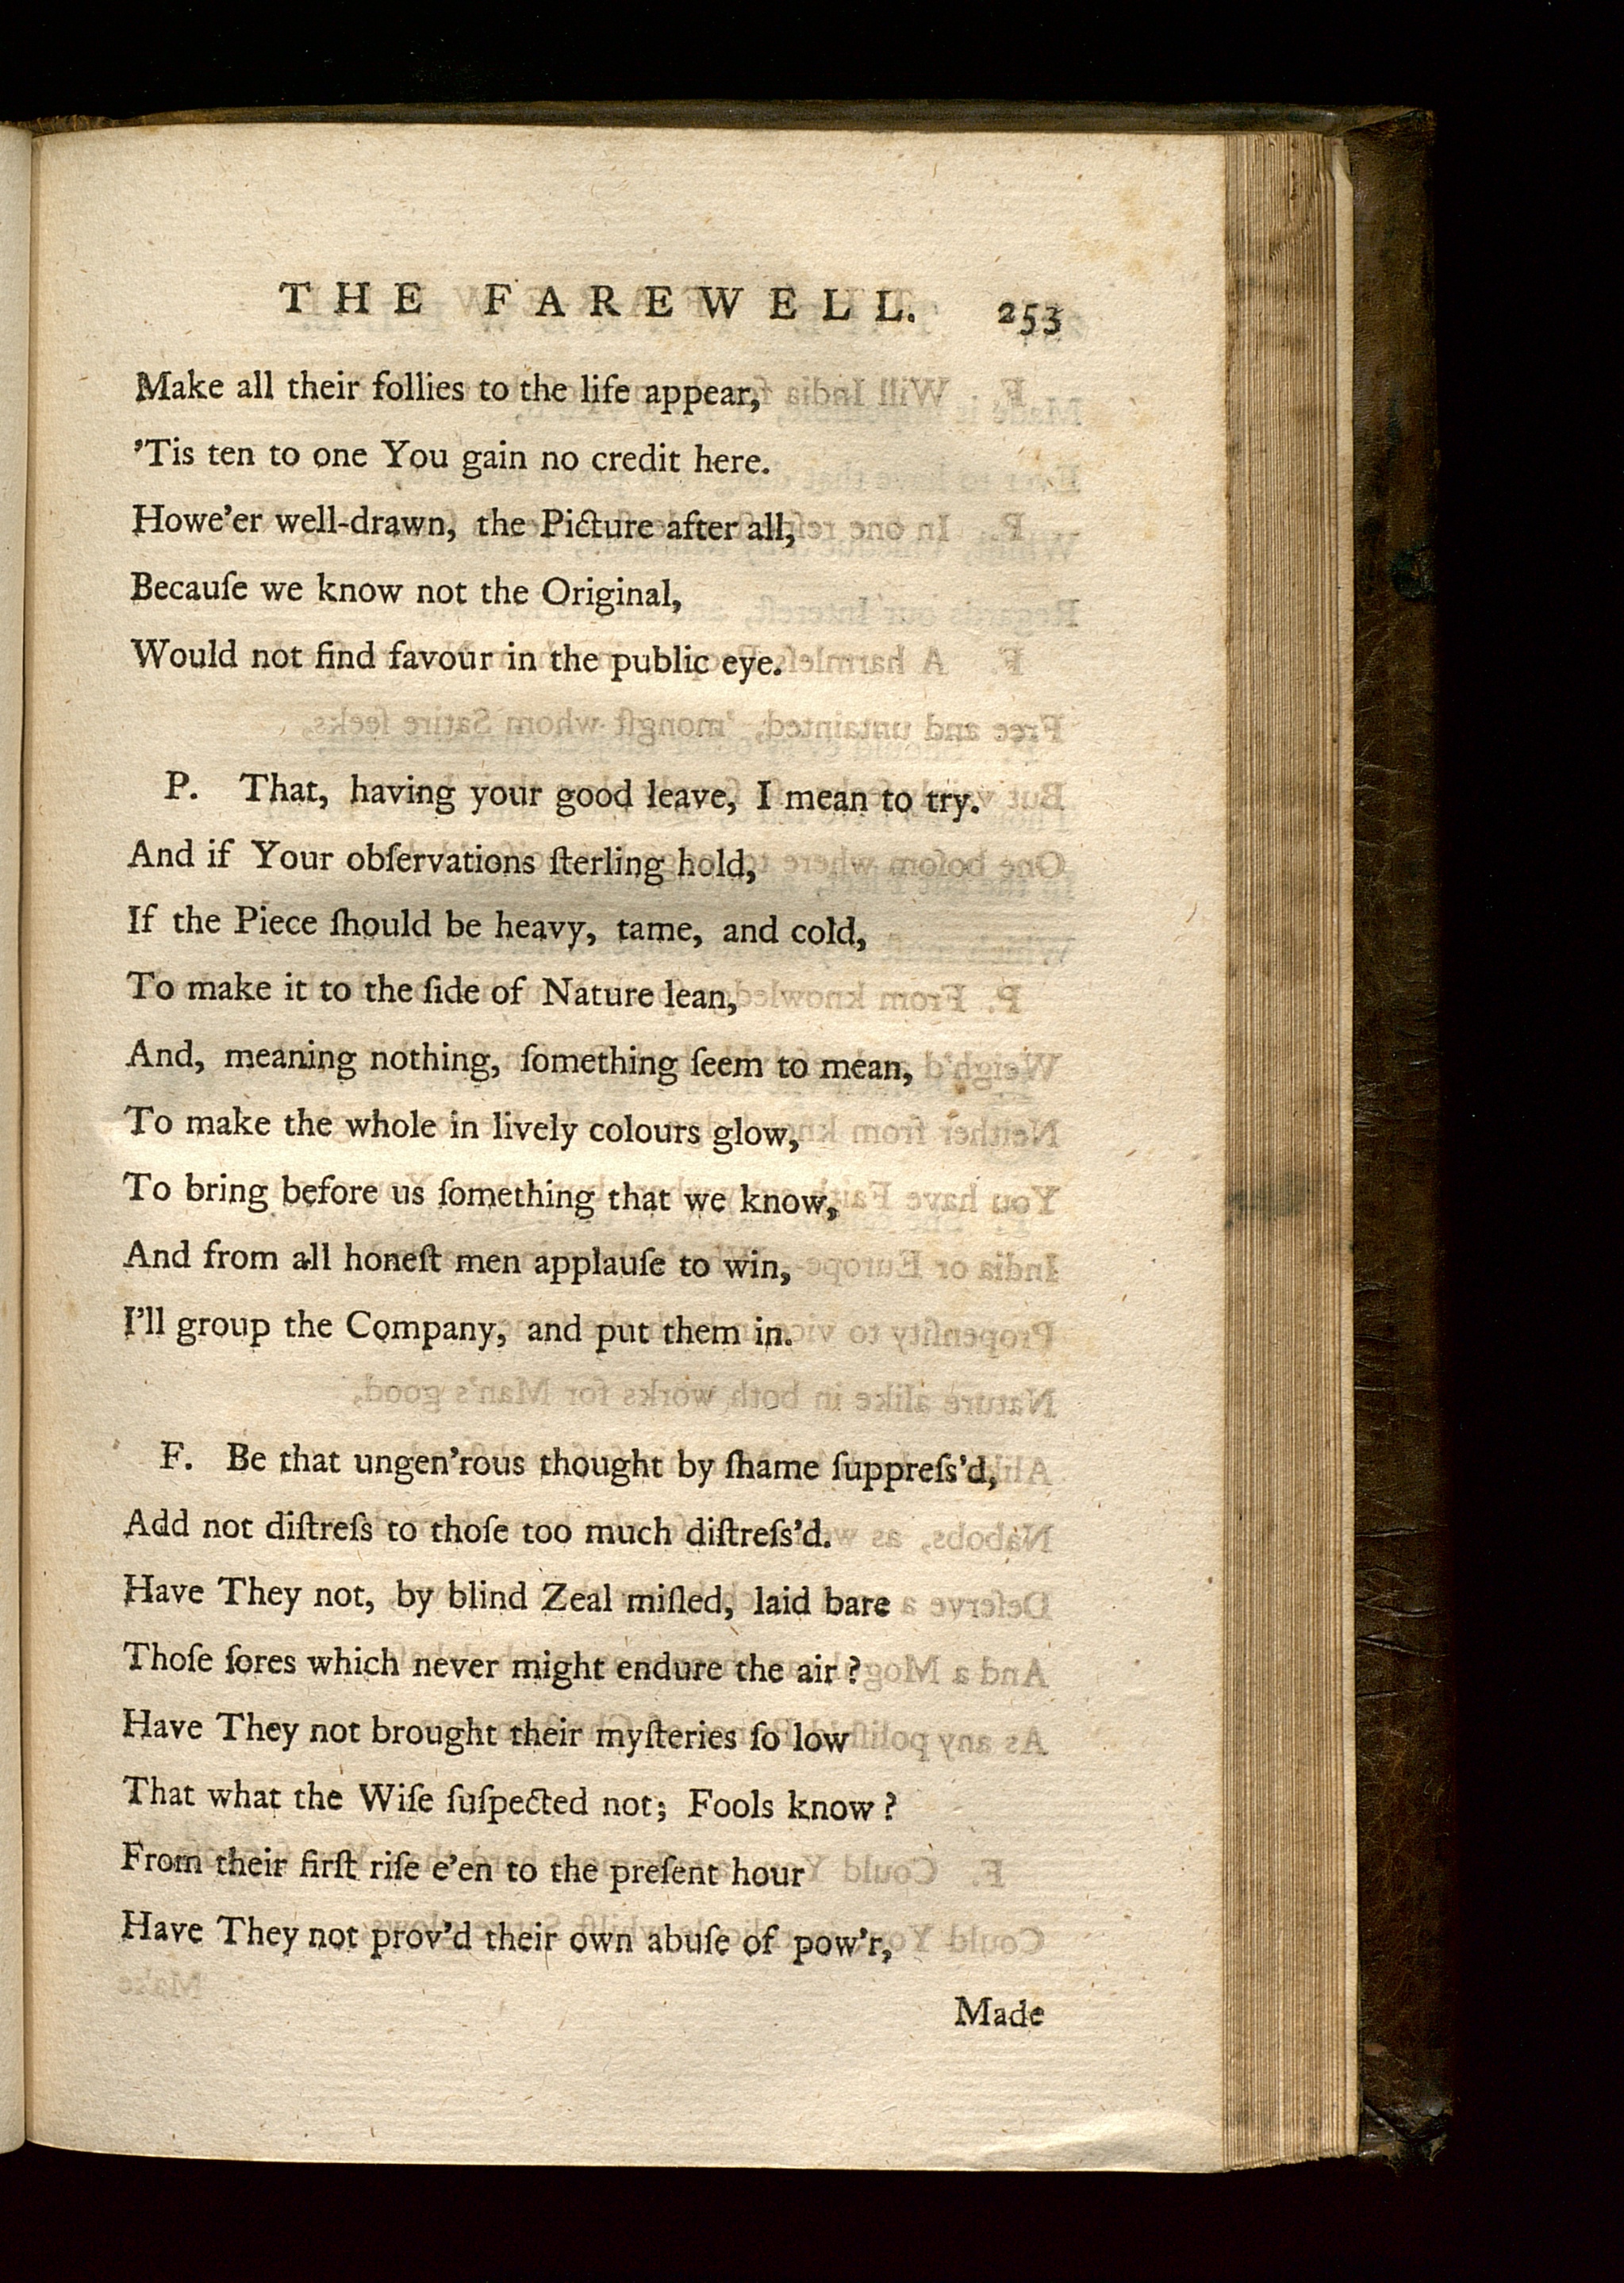 THE FAREWELL. 253
Make all their follies to the life appear,
'Tis ten to one You gain no credit here.
Howe'er well-drawn, the Picture after all,
Becauſe we know not the Original,
Would not find favour in the public eye.
P. That, having your good leave, I mean to try.
And if Your obſervations ſterling hold,
If the Piece ſhould be heavy, tame, and cold,
To make it to the ſide of Nature lean,
And, meaning nothing, ſomething ſeem to mean,
To make the whole in lively colours glow,
To bring before us ſomething that we know,
And from all honeſt men applauſe to win,
I'll group the Company, and put them in.
F. Be that ungen'rous thought by ſhame ſuppreſs'd,
Add not diſtreſs to thoſe too much diſtreſs'd.
Have They not, by blind Zeal miſled, laid bare
Thoſe ſores which never might endure the air?
Have They not brought their myſteries ſo low
That what the Wiſe ſuſpected not; Fools know?
From their firſt riſe e'en to the preſent hour
Have They not prov'd their own abuſe of pow'r,
Made